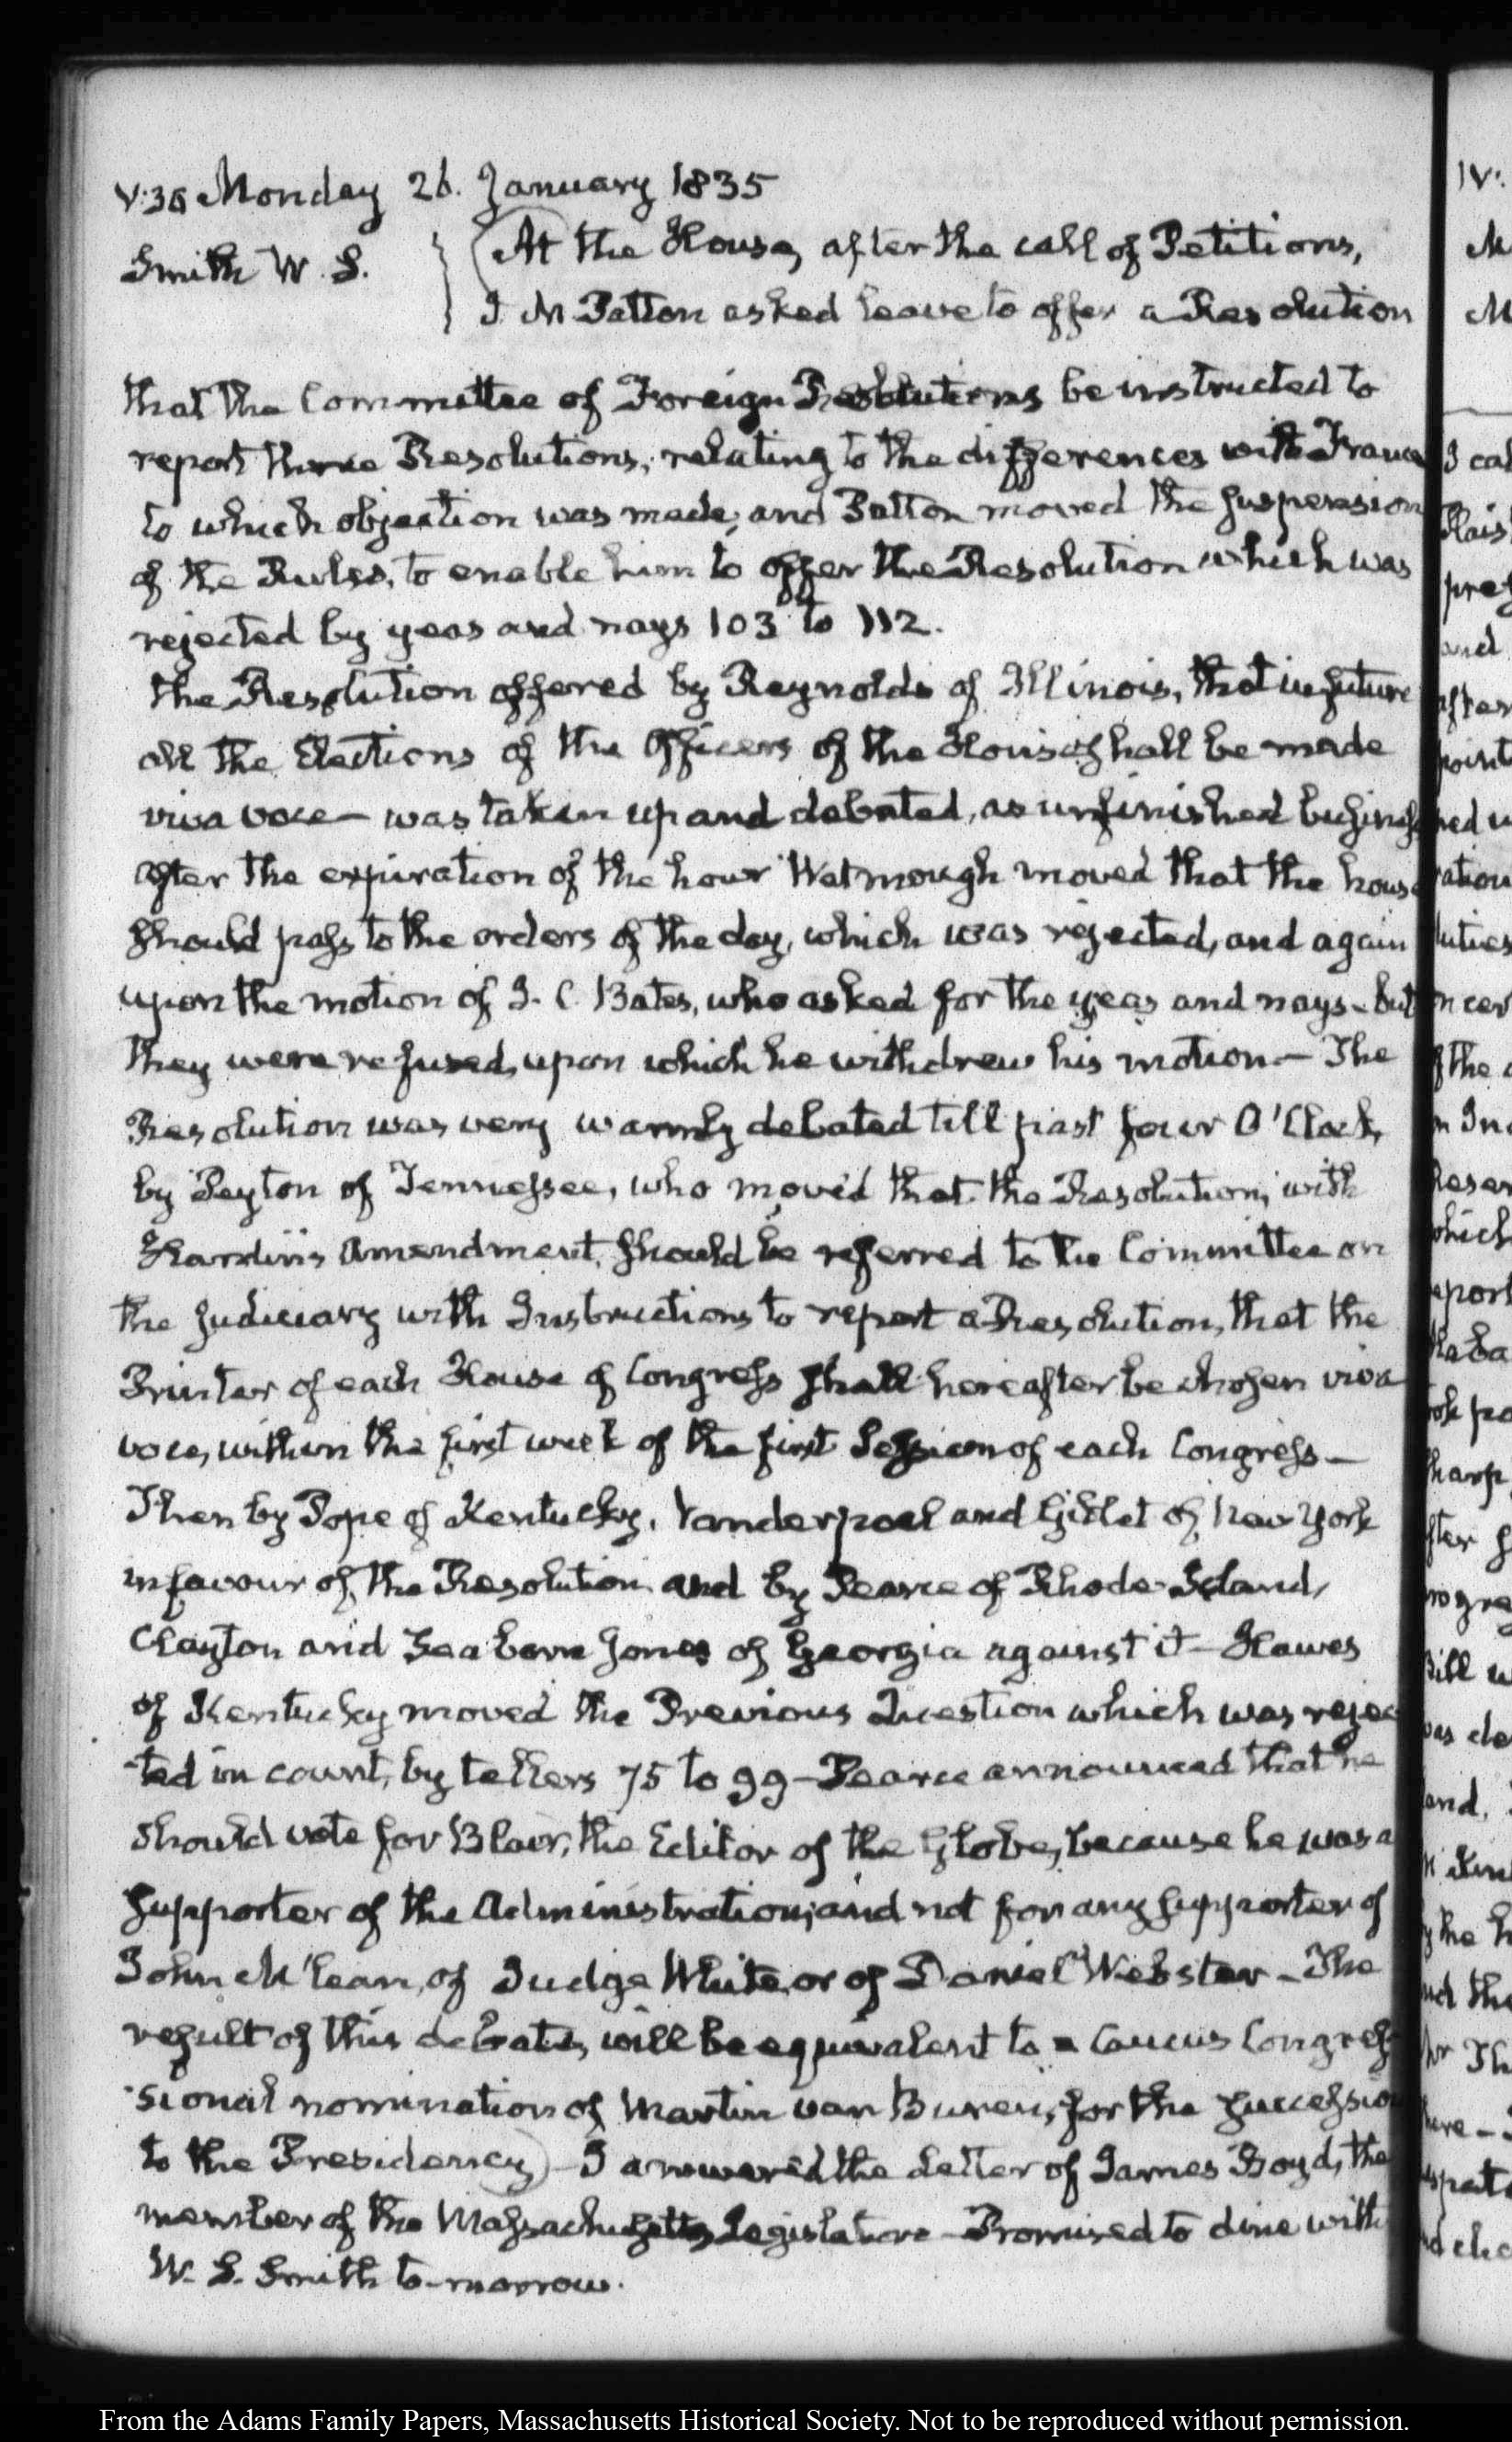 V:30 Monday 26. January 1835
Smith W. S.
At the House, after the call of Petitions,
J. M Patton asked leave to offer a Resolution
that the Committee of Foreign Resolutions be instructed to
report three Resolutions, relating to the differences with France
to which objection was made, and Patton moved the suspension
of the Rules, to enable him to offer the Resolution which was
rejected by yeas and nays 103 to 112.
The Resolution offered by Reynolds of Illinois, that in future
all the Elections of the Officers of the House shall be made
viva voce— was taken up and debated, as unfinished business
after the expiration of the hour Watmough moved that the house
should pass to the orders of the day, which was rejected, and again
upon the motion of I. C. Bates, who asked for the yeas and nays – but
they were refused, upon which he withdrew his motion— The
Resolution was very warmly debated till past four O'Clock,
by Peyton of Tennessee, who moved that the Resolution, with
Hardin's Amendment, should be referred to the Committee on
the Judiciary with Instructions to report a Resolution, that the
Printer of each House of Congress shall hereafter be chosen viva
voce, within the first week of the first Session of each Congress—
Then by Pope of Kentucky, Vanderpoel and Gillet of New York
in favour of the Resolution and by Pearce of Rhode-Island,
Clayton and Seaborn Jones of Georgia against it— Hawes
of Kentucky moved the Previous Question which was rejec
ted in count, by tellers 75 to 99—Pearce announced that he
should vote for Blair, the Editor of the Globe, because he was a
supporter of the Administration; and not for any supporter of
John McLean, of Judge White, or of Daniel Webster – The
result of this debate, will be equivalent to a Caucus Congres
sional nomination of Martin van Buren, for the succession
to the Presidency) – I answered the Letter of James Boyd, the
member of the Massachusetts Legislature – Promised to dine with
W. S. Smith to-morrow.
From the Adams Family Papers, Massachusetts Historical Society. Not to be reproduced without permission.